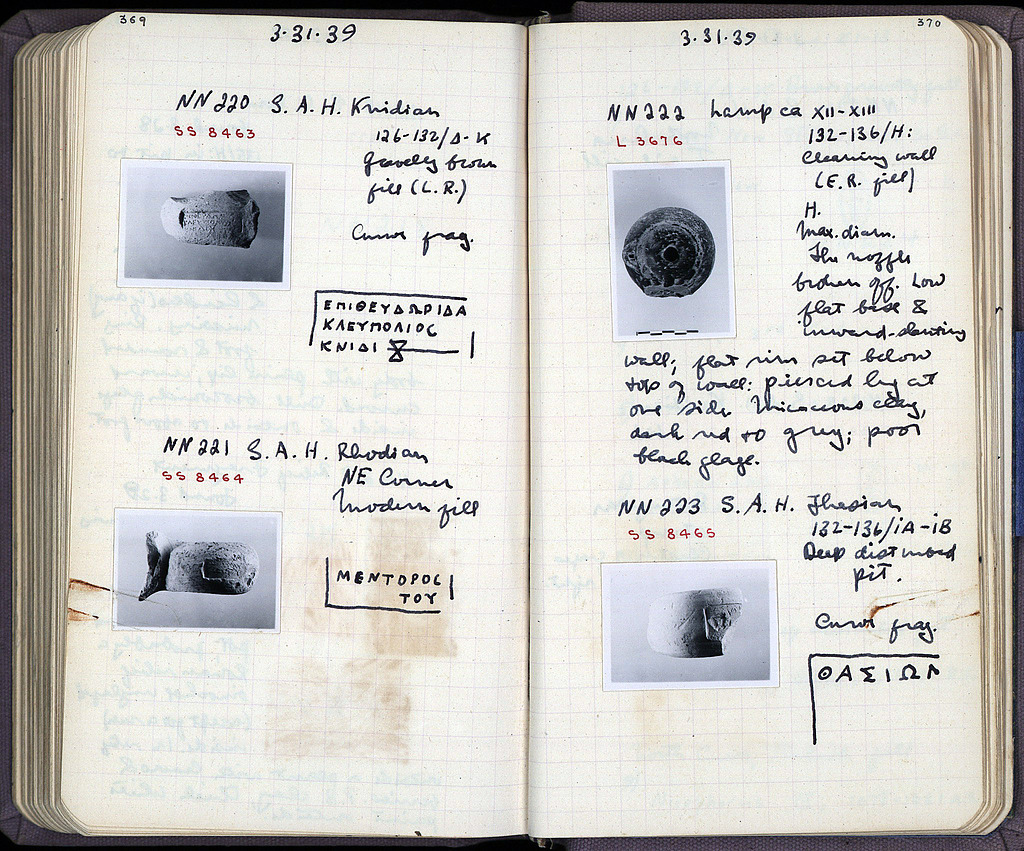 369
3·31·39
NN 220 S. A. H. Knidian
SS 8463
126-132/Δ-K
Gravelly brown
fill (L.R.)
Curios frag.
ΕΠΙΘΕΥΔΩΡΙΔΑ
ΚΛΕΥΠΟΛΙΟC
ΚΝΙΔΙ
NN 221 S. A. H. Rhodian
SS 8464
NE Corner
Modern fill
ΜΕΝΤΟΡΟC
ΤΟΥ
370
3·31·39
NN 222 Lamp ca XII-XIII
L 3676
132-136/H:
Cleaning wall
(E.R. fill)
H.
Max. diam.
The nozzle
broken off. Low
flat base &
inward-slanting
wall; flat rim set below
top of wall: pierced lug at
one side. Micaceous clay,
dark red to grey; poor
black glaze.
NN 223 S. A. H. Thasian
SS 8465
132-136/IA-IB
Deep disturbed
pit.
frag.
ΘΑΣΙΩΝ